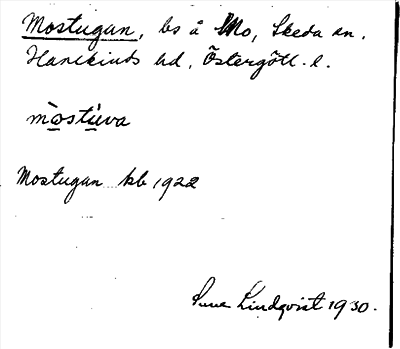 Mostugan, bs å Mo, Skeda sn,
Hanekinds hd, Östergötl. l.
mòstúva
Mostugan kb 1922
Sune Lindqvist 1930.